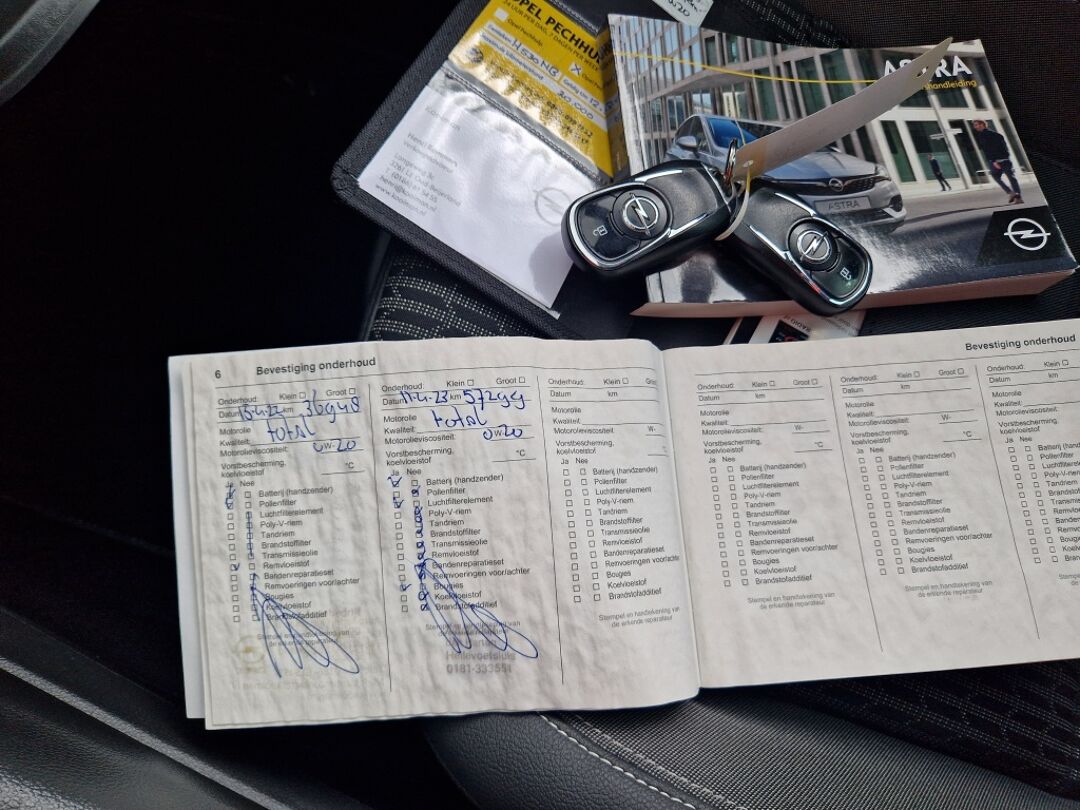 OPEL PECHHU
24 UUR PER DAG, 7 DAGEN PER WEEK
H530NB
20.000
Kooiman
Henri Kooiman
Langeweg 3c
3261 LJ Oud-Beijerland
www.kooiman.nl
ASTRA
ASTRA
6 Bevestiging onderhoud
Onderhoud: Klein Groot
Datum 13-4-22 km 36948
Motorolie
Kwaliteit: total
Motorolieviscositeit: 0W-20
Vorstbescherming,
koelvloeistof °C
Ja Nee
Batterij (handzender)
Pollenfilter
Luchtfilterelement
Poly-V-riem
Tandriem
Brandstoffilter
Transmissieolie
Remvloeistof
Bandenreparatieset
Remvoeringen voor/achter
Bougies
Koelvloeistof
Brandstofadditief
Stempel en handtekening van
de erkende reparateur
Onderhoud: Klein Groot
Datum 11-4-23 km 57299
Motorolie
Kwaliteit: total
Motorolieviscositeit: 0W-20
Vorstbescherming,
koelvloeistof °C
Ja Nee
Batterij (handzender)
Pollenfilter
Luchtfilterelement
Poly-V-riem
Tandriem
Brandstoffilter
Transmissieolie
Remvloeistof
Bandenreparatieset
Remvoeringen voor/achter
Bougies
Koelvloeistof
Brandstofadditief
Hellevoetsluis
0181-333551
Onderhoud: Klein Groot
Datum km
Motorolie
Kwaliteit:
Motorolieviscositeit: W-
Vorstbescherming,
koelvloeistof °C
Ja Nee
Batterij (handzender)
Pollenfilter
Luchtfilterelement
Poly-V-riem
Tandriem
Brandstoffilter
Transmissieolie
Remvloeistof
Bandenreparatieset
Remvoeringen voor/achter
Bougies
Koelvloeistof
Brandstofadditief
Stempel en handtekening van
de erkende reparateur
Bevestiging onderhoud
Onderhoud: Klein Groot
Datum km
Motorolie
Kwaliteit:
Motorolieviscositeit: W-
Vorstbescherming,
koelvloeistof °C
Ja Nee
Batterij (handzender)
Pollenfilter
Luchtfilterelement
Poly-V-riem
Tandriem
Brandstoffilter
Transmissieolie
Remvloeistof
Bandenreparatieset
Remvoeringen voor/achter
Bougies
Koelvloeistof
Brandstofadditief
Stempel en handtekening van
de erkende reparateur
Onderhoud: Klein Groot
Datum km
Motorolie
Kwaliteit:
Motorolieviscositeit: W-
Vorstbescherming,
koelvloeistof °C
Ja Nee
Batterij (handzender)
Pollenfilter
Luchtfilterelement
Poly-V-riem
Tandriem
Brandstoffilter
Transmissieolie
Remvloeistof
Bandenreparatieset
Remvoeringen voor/achter
Bougies
Koelvloeistof
Brandstofadditief
Stempel en handtekening van
de erkende reparateur
Onderhoud: Klein
Datum km
Motorolie
Kwaliteit:
Motorolieviscositeit:
Vorstbescherming,
koelvloeistof
Ja Nee
Batterij (handz
Pollenfilter
Luchtfilterele
Poly-V-riem
Tandriem
Brandstof
Transmis
Remvloei
Bander
Remvo
Bougi
Koelv
Bran